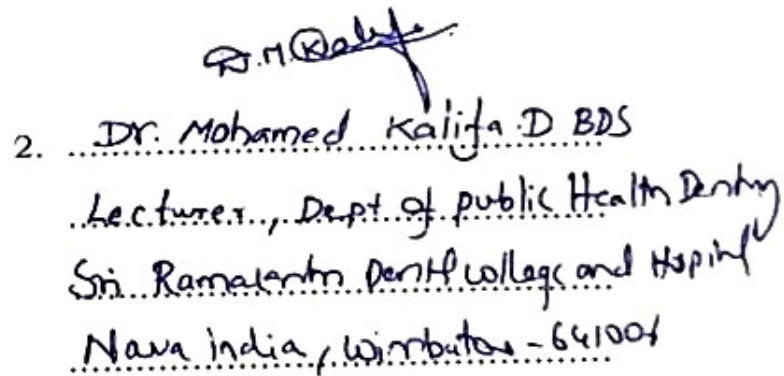 Dr. M. Kalif
2. Dr. Mohamed Kalifa D BDS
Lecturer, Dept of public Health Dentistry
Sri Ramakrishna Dental college and Hospital
Nava india, Coimbatore - 641006